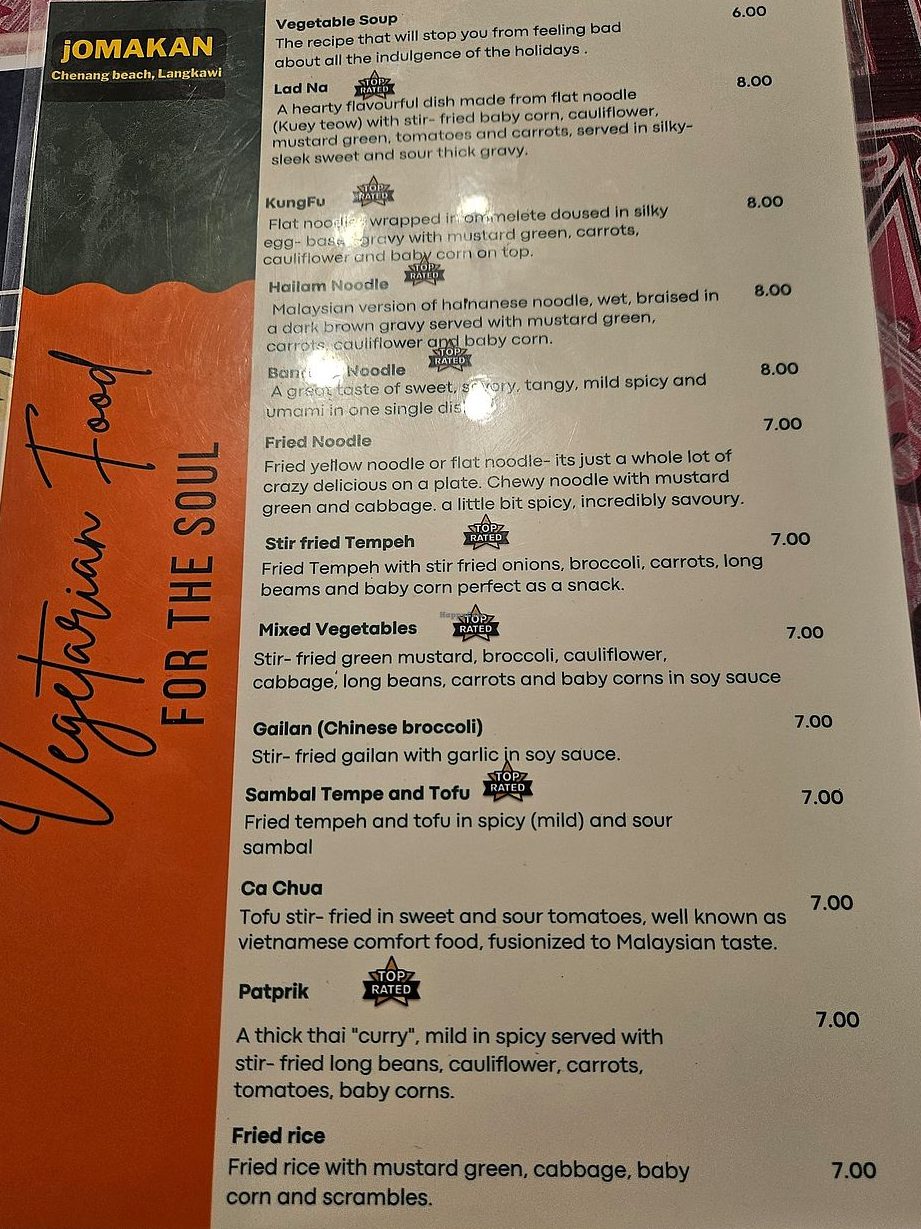 jOMAKAN
Chenang beach, Langkawi
Vegetarian Food
FOR THE SOUL
Vegetable Soup 6.00
The recipe that will stop you from feeling bad
about all the indulgence of the holidays .
Lad Na TOP RATED 8.00
A hearty flavourful dish made from flat noodle
(Kuey teow) with stir- fried baby corn, cauliflower,
mustard green, tomatoes and carrots, served in silky-
sleek sweet and sour thick gravy.
KungFu TOP RATED 8.00
Flat noodles wrapped in ommelete doused in silky
egg- base gravy with mustard green, carrots,
cauliflower and baby corn on top.
Hailam Noodle TOP RATED 8.00
Malaysian version of hainanese noodle, wet, braised in
a dark brown gravy served with mustard green,
carrots, cauliflower and baby corn.
Noodle TOP RATED 8.00
A great taste of sweet, savory, tangy, mild spicy and
umami in one single dish
Fried Noodle 7.00
Fried yellow noodle or flat noodle- its just a whole lot of
crazy delicious on a plate. Chewy noodle with mustard
green and cabbage. a little bit spicy, incredibly savoury.
Stir fried Tempeh TOP RATED 7.00
Fried Tempeh with stir fried onions, broccoli, carrots, long
beams and baby corn perfect as a snack.
Mixed Vegetables TOP RATED 7.00
Stir- fried green mustard, broccoli, cauliflower,
cabbage, long beans, carrots and baby corns in soy sauce
Gailan (Chinese broccoli) 7.00
Stir- fried gailan with garlic in soy sauce.
Sambal Tempe and Tofu TOP RATED 7.00
Fried tempeh and tofu in spicy (mild) and sour
sambal
Ca Chua 7.00
Tofu stir- fried in sweet and sour tomatoes, well known as
vietnamese comfort food, fusionized to Malaysian taste.
Patprik TOP RATED 7.00
A thick thai "curry", mild in spicy served with
stir- fried long beans, cauliflower, carrots,
tomatoes, baby corns.
Fried rice 7.00
Fried rice with mustard green, cabbage, baby
corn and scrambles.